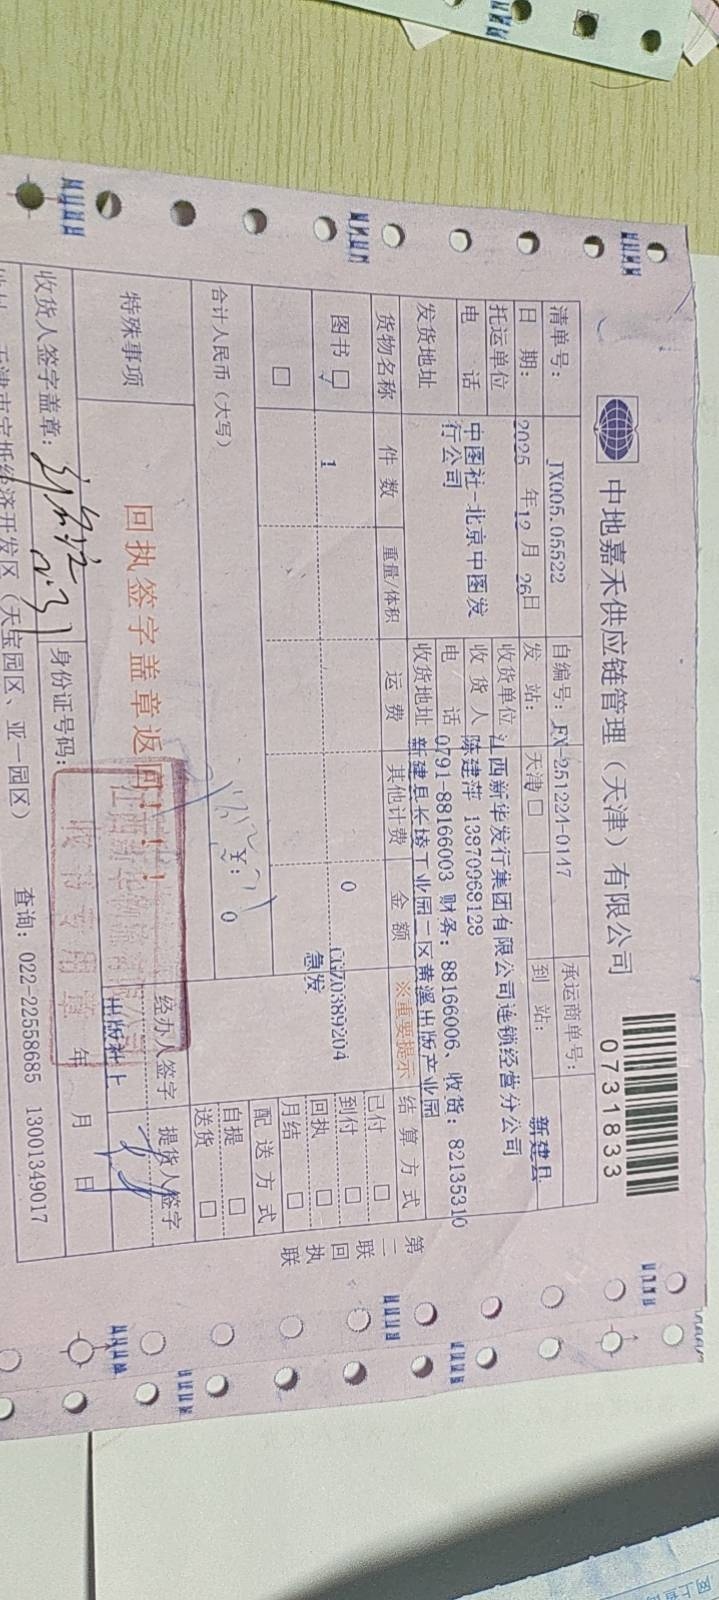 中地嘉禾供应链管理（天津）有限公司
0731833
清单号： JX005.05522 自编号： FX-251224-0147 承运商单号：
日 期： 2025 年 12 月 26日 发 站： 天津□ 到 站： 新建县
托运单位 中图社-北京中图发行公司 收货单位 江西新华发行集团有限公司连锁经营分公司
收 货 人 陈建萍 13870968128
电 话 电 话 0791-88166003 财务：88166006、收货：82135310
发货地址 收货地址 新建县长堎工业园二区黄溪出版产业园
货物名称 件 数 重量/体积 运 费 其他计费 金 额 ※重要提示 结 算 方 式
图书 □ ✓ 1 0
急发
已付 □
到付 □
回执 □
月结 □
□
配 送 方 式
自提 □
送货 □
合计人民币（大写） ￥： 0
特殊事项 回执签字盖章返回！！！
经办人签字 提货人签字
出版社上
收货人签字盖章： 身份证号码： 年 月 日
收书专用章
天津市宝坻经济开发区（天宝园区、亚一园区） 查询：022-22558685 13001349017
第二联 回执联
网上查